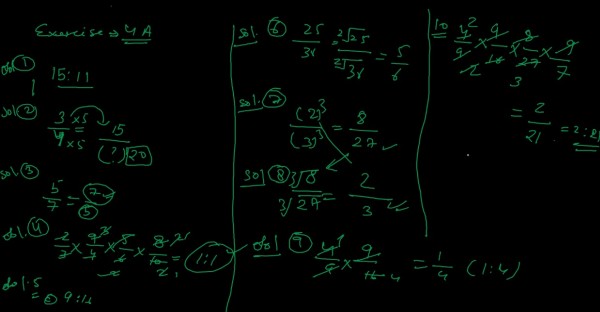 Exercise → 4A
sol ①
15:11
sol ②
3 ×5 / 4 ×5 = 15 / (?) 20
sol ③
5/7 = 7/5
sol. ④
= 1:1
sol. 5
= 9:16
sol. ⑥ 25/36 = ²√25 / ²√36 = 5/6
sol. ⑦ (2)³ / (3)³ = 8/27
sol ⑧ ³√8 / ³√27 = 2/3
sol ⑨ 4/9 × 9/16 = 1/4 (1:4)
10 4/9 × 9/16 × 8/27 × 9/7
= 2/21 = 2:21